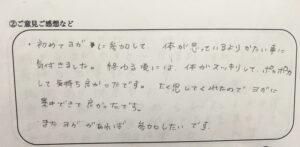 ②ご意見ご感想など
・初めてヨガに参加して 体が思っているよりかたい事に
気付きました。終わる後には、体がスッキリして、ポカポカ
して気持ち良かったです。たく児してくれたのでヨガに
集中できて良かったです。
またヨガがあれば 参加したいです。